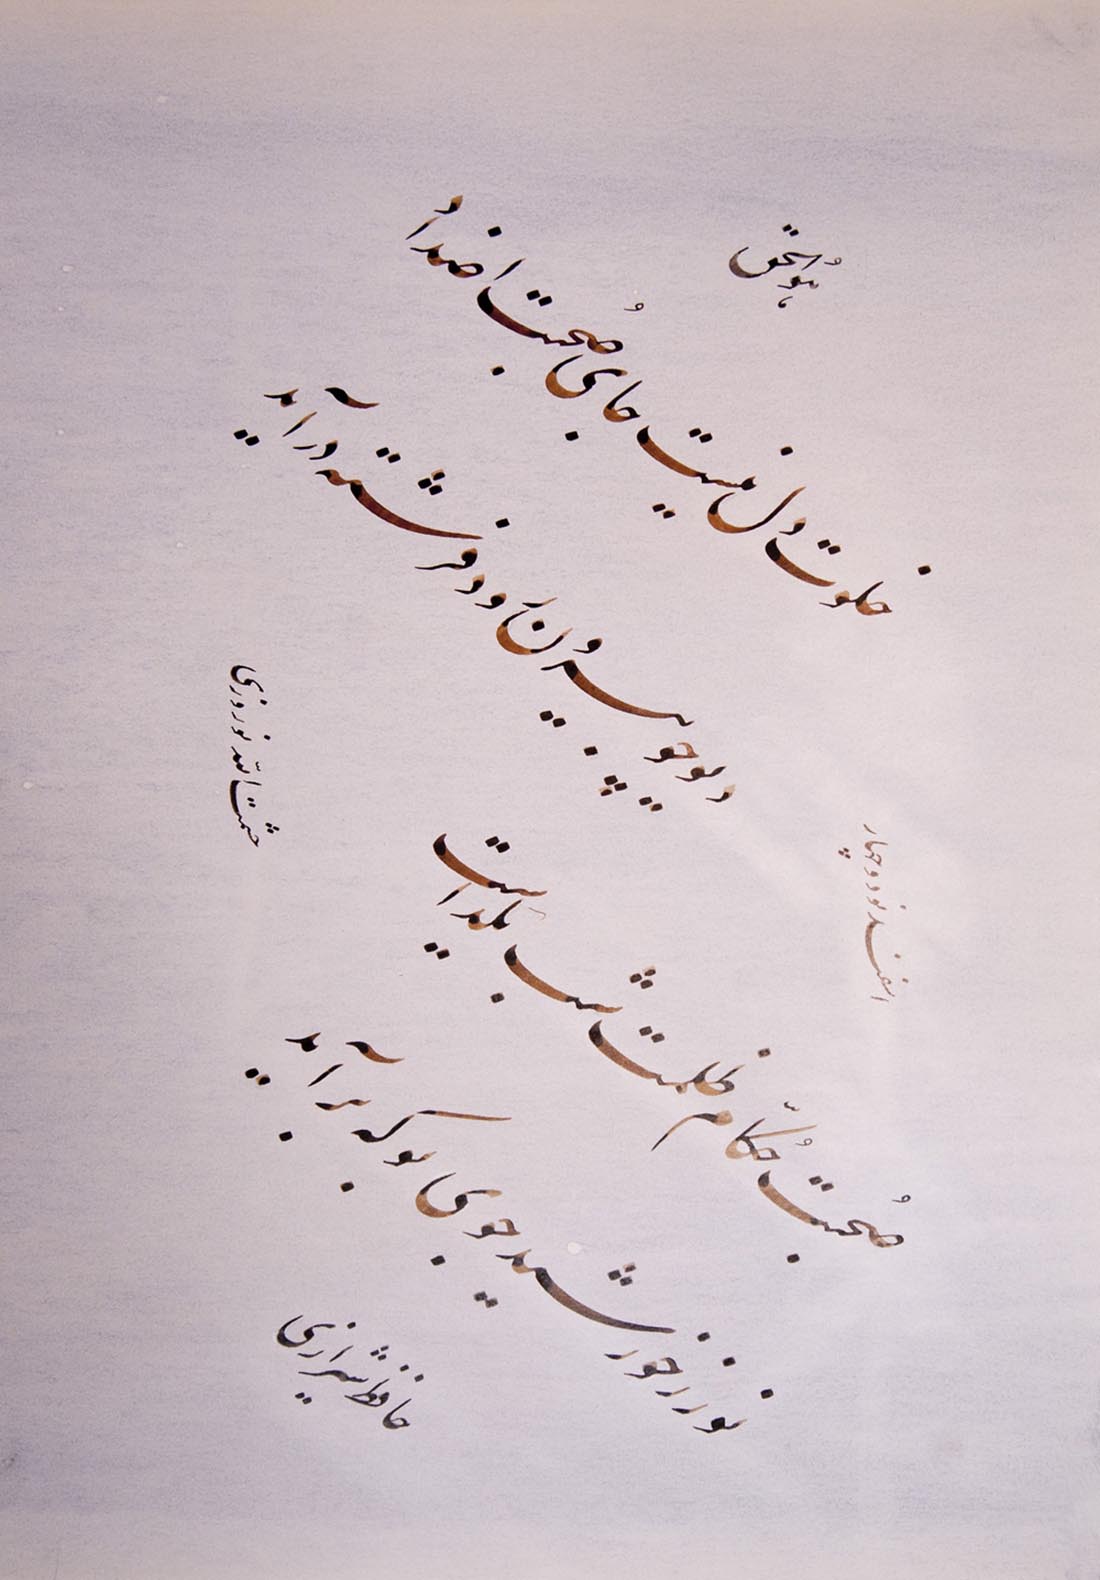 هوالحق
خلوت دل نیست جای صُحبت اضداد
دیو چو بیرُون رَود فرشته درآید
صُحبت حُکّام ظلمت شب یلداست
نور ز خورشید جوی بو که برآید
حافظ شیرازی
حشمت الله نوروزی
اسفند نود و چهار